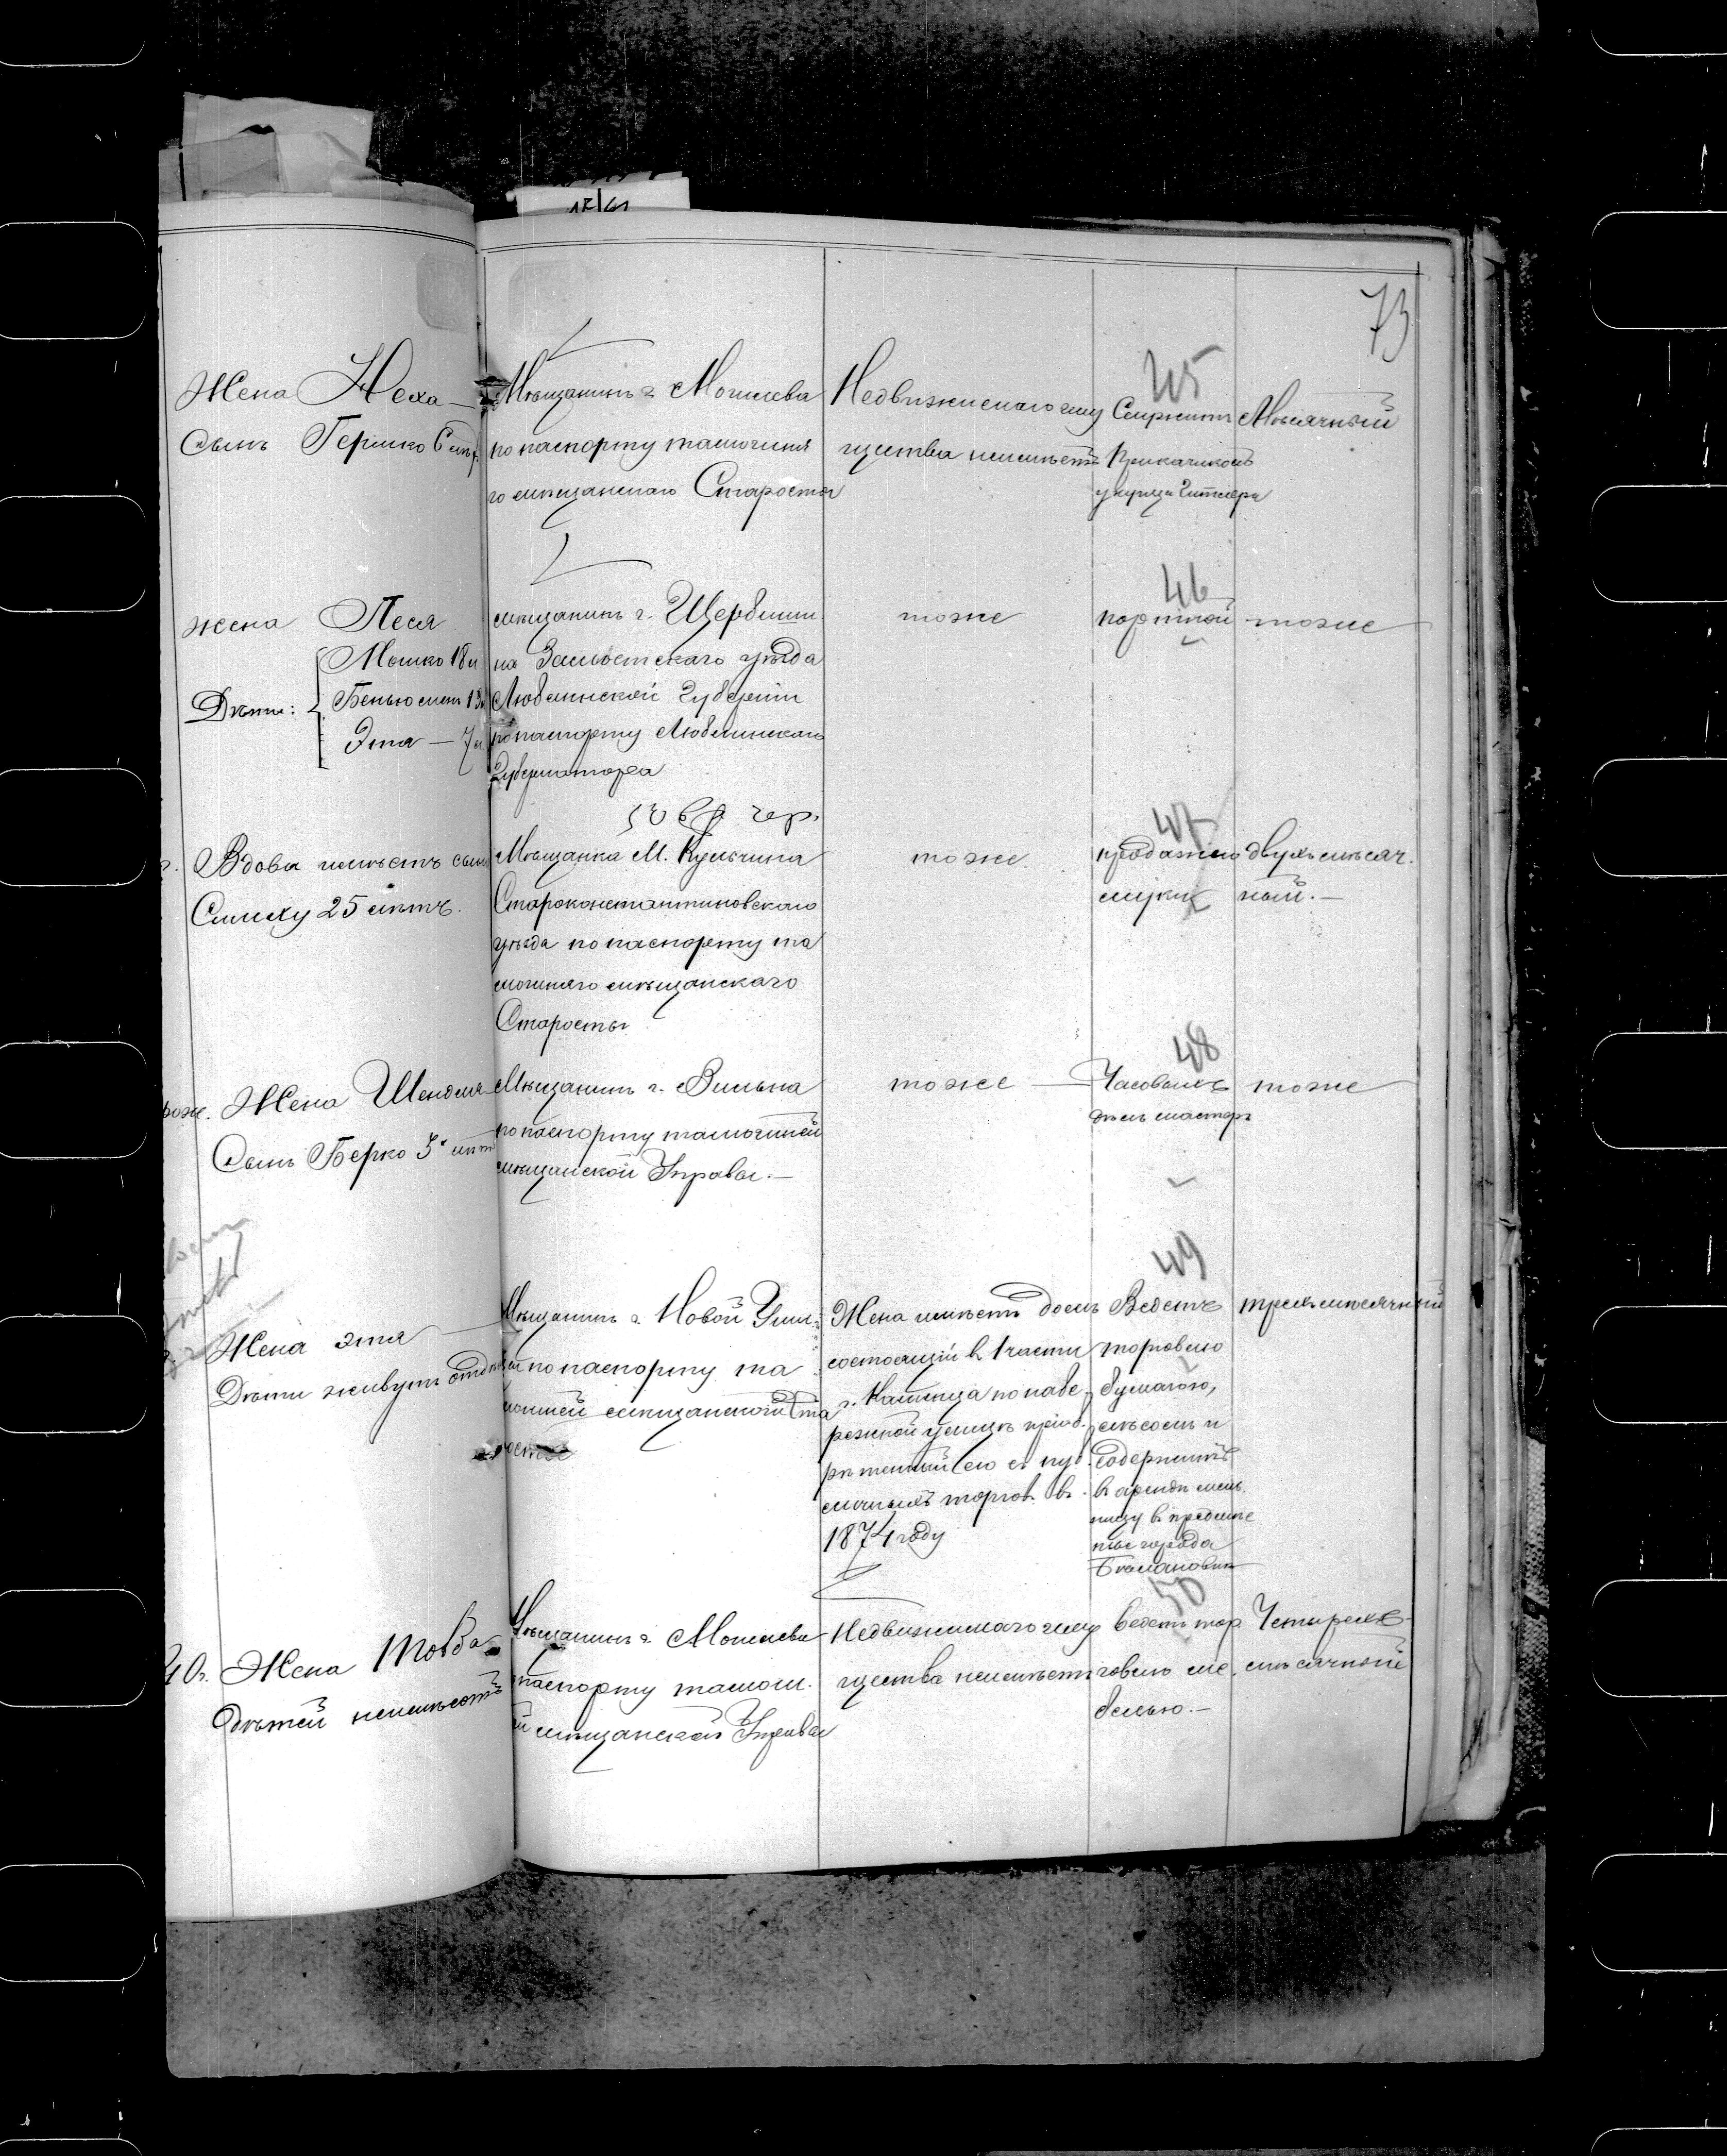 73
45
Жена Неха —
Сынъ Гершко 6 лѣт.
Мѣщанинъ г. Могилева
по паспорту тамошня
го мѣщанскаго Старосты
Недвижимаго иму
щества неимѣетъ
Служитъ
Прикащикомъ
у купца
Мѣсячный
46
жена Песя
Дѣти:
Мошко 18 л
Беньюминъ 13 л
Этля — 7 л
мѣщанинъ г. Щербеши
на Замостскаго уѣзда
Люблинской Губерніи
по паспорту Люблинскаго
Губернатора
тоже
портной
тоже
47
Вдова имѣетъ сына
Симху 25 лѣтъ.
Мѣщанка М. Кульчина
Староконстантиновскаго
уѣзда по паспорту та
мошняго мѣщанскаго
Старосты
тоже
продажею
муки
двухмѣсяч.
ный. —
48
Жена Шендля
Сынъ Берко 3х лѣт
Мѣщанинъ г. Вильна
по паспорту тамошней
мѣщанской Управы. —
тоже —
Часовыхъ
дѣлъ мастеръ
тоже
49
Жена Этя
Дѣти живутъ отдѣл
Мѣщанинъ г. Новой Уши
цы по паспорту та
мошней мѣщанской Ста
росты
Жена имѣетъ домъ
состоящій в 1 части
г. Каменца по набе
режной улицѣ пріоб.
рѣтенный ею съ пуб
личныхъ торгов. въ
1874 году
Ведетъ
торговлю
бумагою,
мѣсомъ и
содержитъ
въ арендѣ мель
ницу въ предмѣс
тье города
трехмѣсячный
50
40.
Жена Товба
дѣтей неимѣетъ
Мѣщанинъ г. Могилева
паспорту тамош.
й мѣщанской Управы
Недвижимаго иму
щества неимѣетъ
ведетъ тор
говлю ме.
белью. —
Четырехъ
мѣсячный